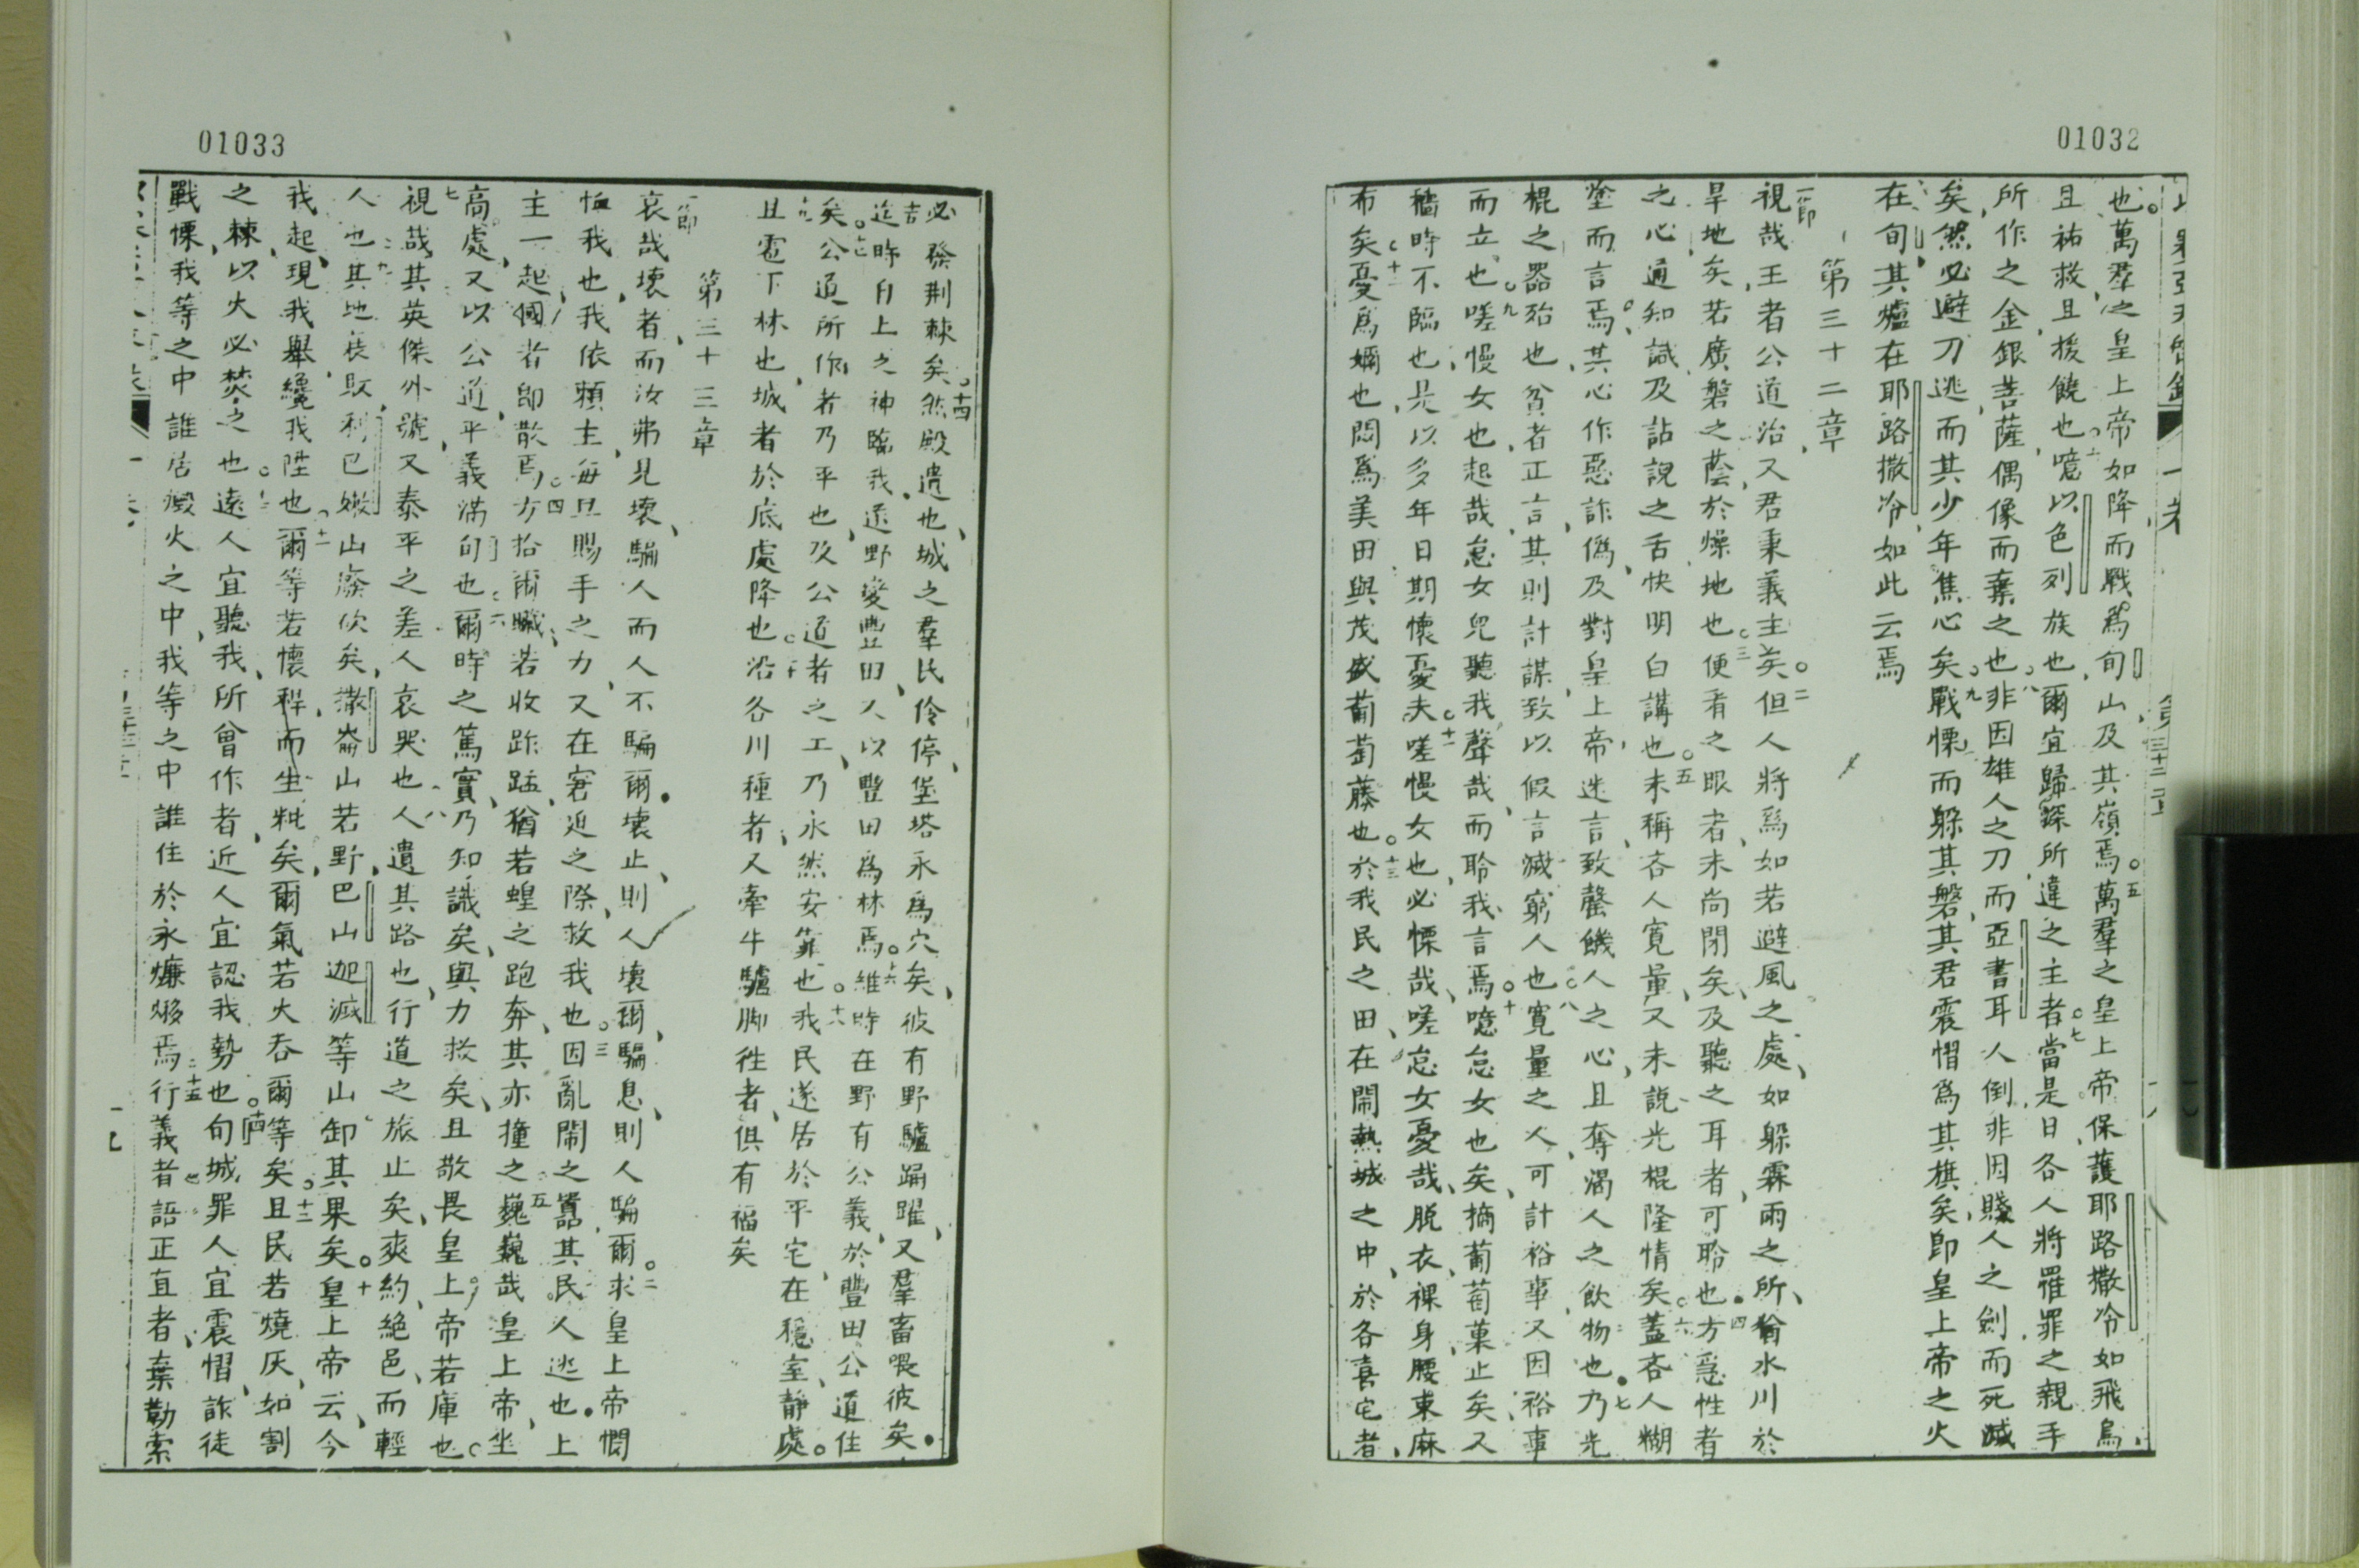 01032
也萬羣之皇上帝如降而戰爲旬山及其嶺焉五萬羣之皇上帝保護耶路撒冷如飛鳥
且祐救且援饒也六噫以色列族也爾宜歸所違之主者七當是日各人將罹罪之親手
所作之金銀菩薩偶像而棄之也八非因雄人之刀而亞書耳人倒非因賤人之劍而死滅
矣然必避刀逃而其少年焦心矣九戰慄而躲其磐其君震慴爲其旗矣即皇上帝之火
在旬其爐在耶路撒冷如此云焉
第三十二章
一節
視哉王者公道治又君秉義主矣二但人將爲如若避風之處如躲霖雨之所猶水川於
旱地矣若廣磐之蔭於燥地也三便看之眼者未尚閉矣及聽之耳者可聆也四方急性者
之心通知識及訥說之舌快明白講也五未稱吝人寬量又未說光棍隆情矣六蓋吝人糊
塗而言焉其心作惡詐僞及對皇上帝迷言致罄饑人之心且奪渴人之飲物也七乃光
棍之器殆也貧者正言其則計謀致以假言滅窮人也八寬量之人可計裕事又因裕事
而立也九嗟慢女也起哉怠女兒聽我聲哉而聆我言焉十噫怠女也矣摘葡萄菓止矣又
穡時不臨也是以多年日期懷憂夫十一嗟慢女也必慄哉嗟怠女憂哉脱衣裸身腰束麻
布矣十二憂爲嬭也悶爲美田與茂盛葡萄藤也十三於我民之田在鬧熱城之中於各喜宅者
01033
必發荆棘矣十四然殿遺也城之羣民伶停堡塔永爲穴矣彼有野驢踊躍又羣畜喂彼矣
迄時自上之神臨我遂野變豐田又以豐田爲林焉十六維時在野有公義於豐田公道住
矣十七公道所作者乃平也及公道者之工乃永然安靠也十八我民遂居於平宅在穩室靜處
且雹下林也城者於底處降也二十沿各川種者又牽牛驢脚徃者俱有福矣
第三十三章
一節
哀哉壞者而汝弗見壞騙人而人不騙爾壞止則人壞爾騙息則人騙爾二求皇上帝憫
恤我也我依賴主每旦賜手之力又在窘迫之際救我也三因亂鬧之囂其民人逃也上
主一起國者即散焉四方拾爾贓若收蚱蜢猶若蝗之跑奔其亦撞之五巍巍哉皇上帝坐
高處又以公道平義滿旬也六爾時之篤實乃知識矣與力救矣且敬畏皇上帝若庫也
七視哉其英傑外號又泰平之差人哀哭也八人遺其路也行道之旅止矣爽約絕邑而輕
人也九其地衰敗利巴嫩山廢伙矣撒崙山若野巴山迦滅等山卸其果矣十皇上帝云今
我起現我舉纔我陞也十一爾等若懷稈而生粃矣爾氣若火吞爾等矣十二且民若燒灰如割
之棘以火必焚之也十三遠人宜聽我所曾作者近人宜認我勢也十四旬城罪人宜震慴詐徒
戰慄我等之中誰居燬火之中我等之中誰住於永爊燬焉十五行義者語正直者棄勒索